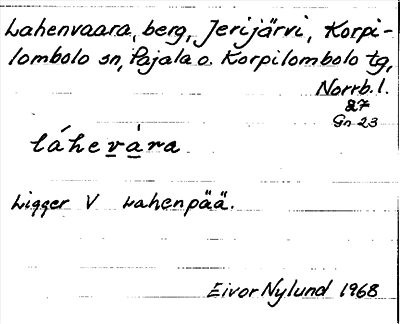 Lahenvaara, berg, Jerijärvi, Korpi-
lombolo sn, Pajala o. Korpilombolo tg,
Norrb. l.
27
Gn 23
láhevára
Ligger V Lahenpää.
Eivor Nylund 1968